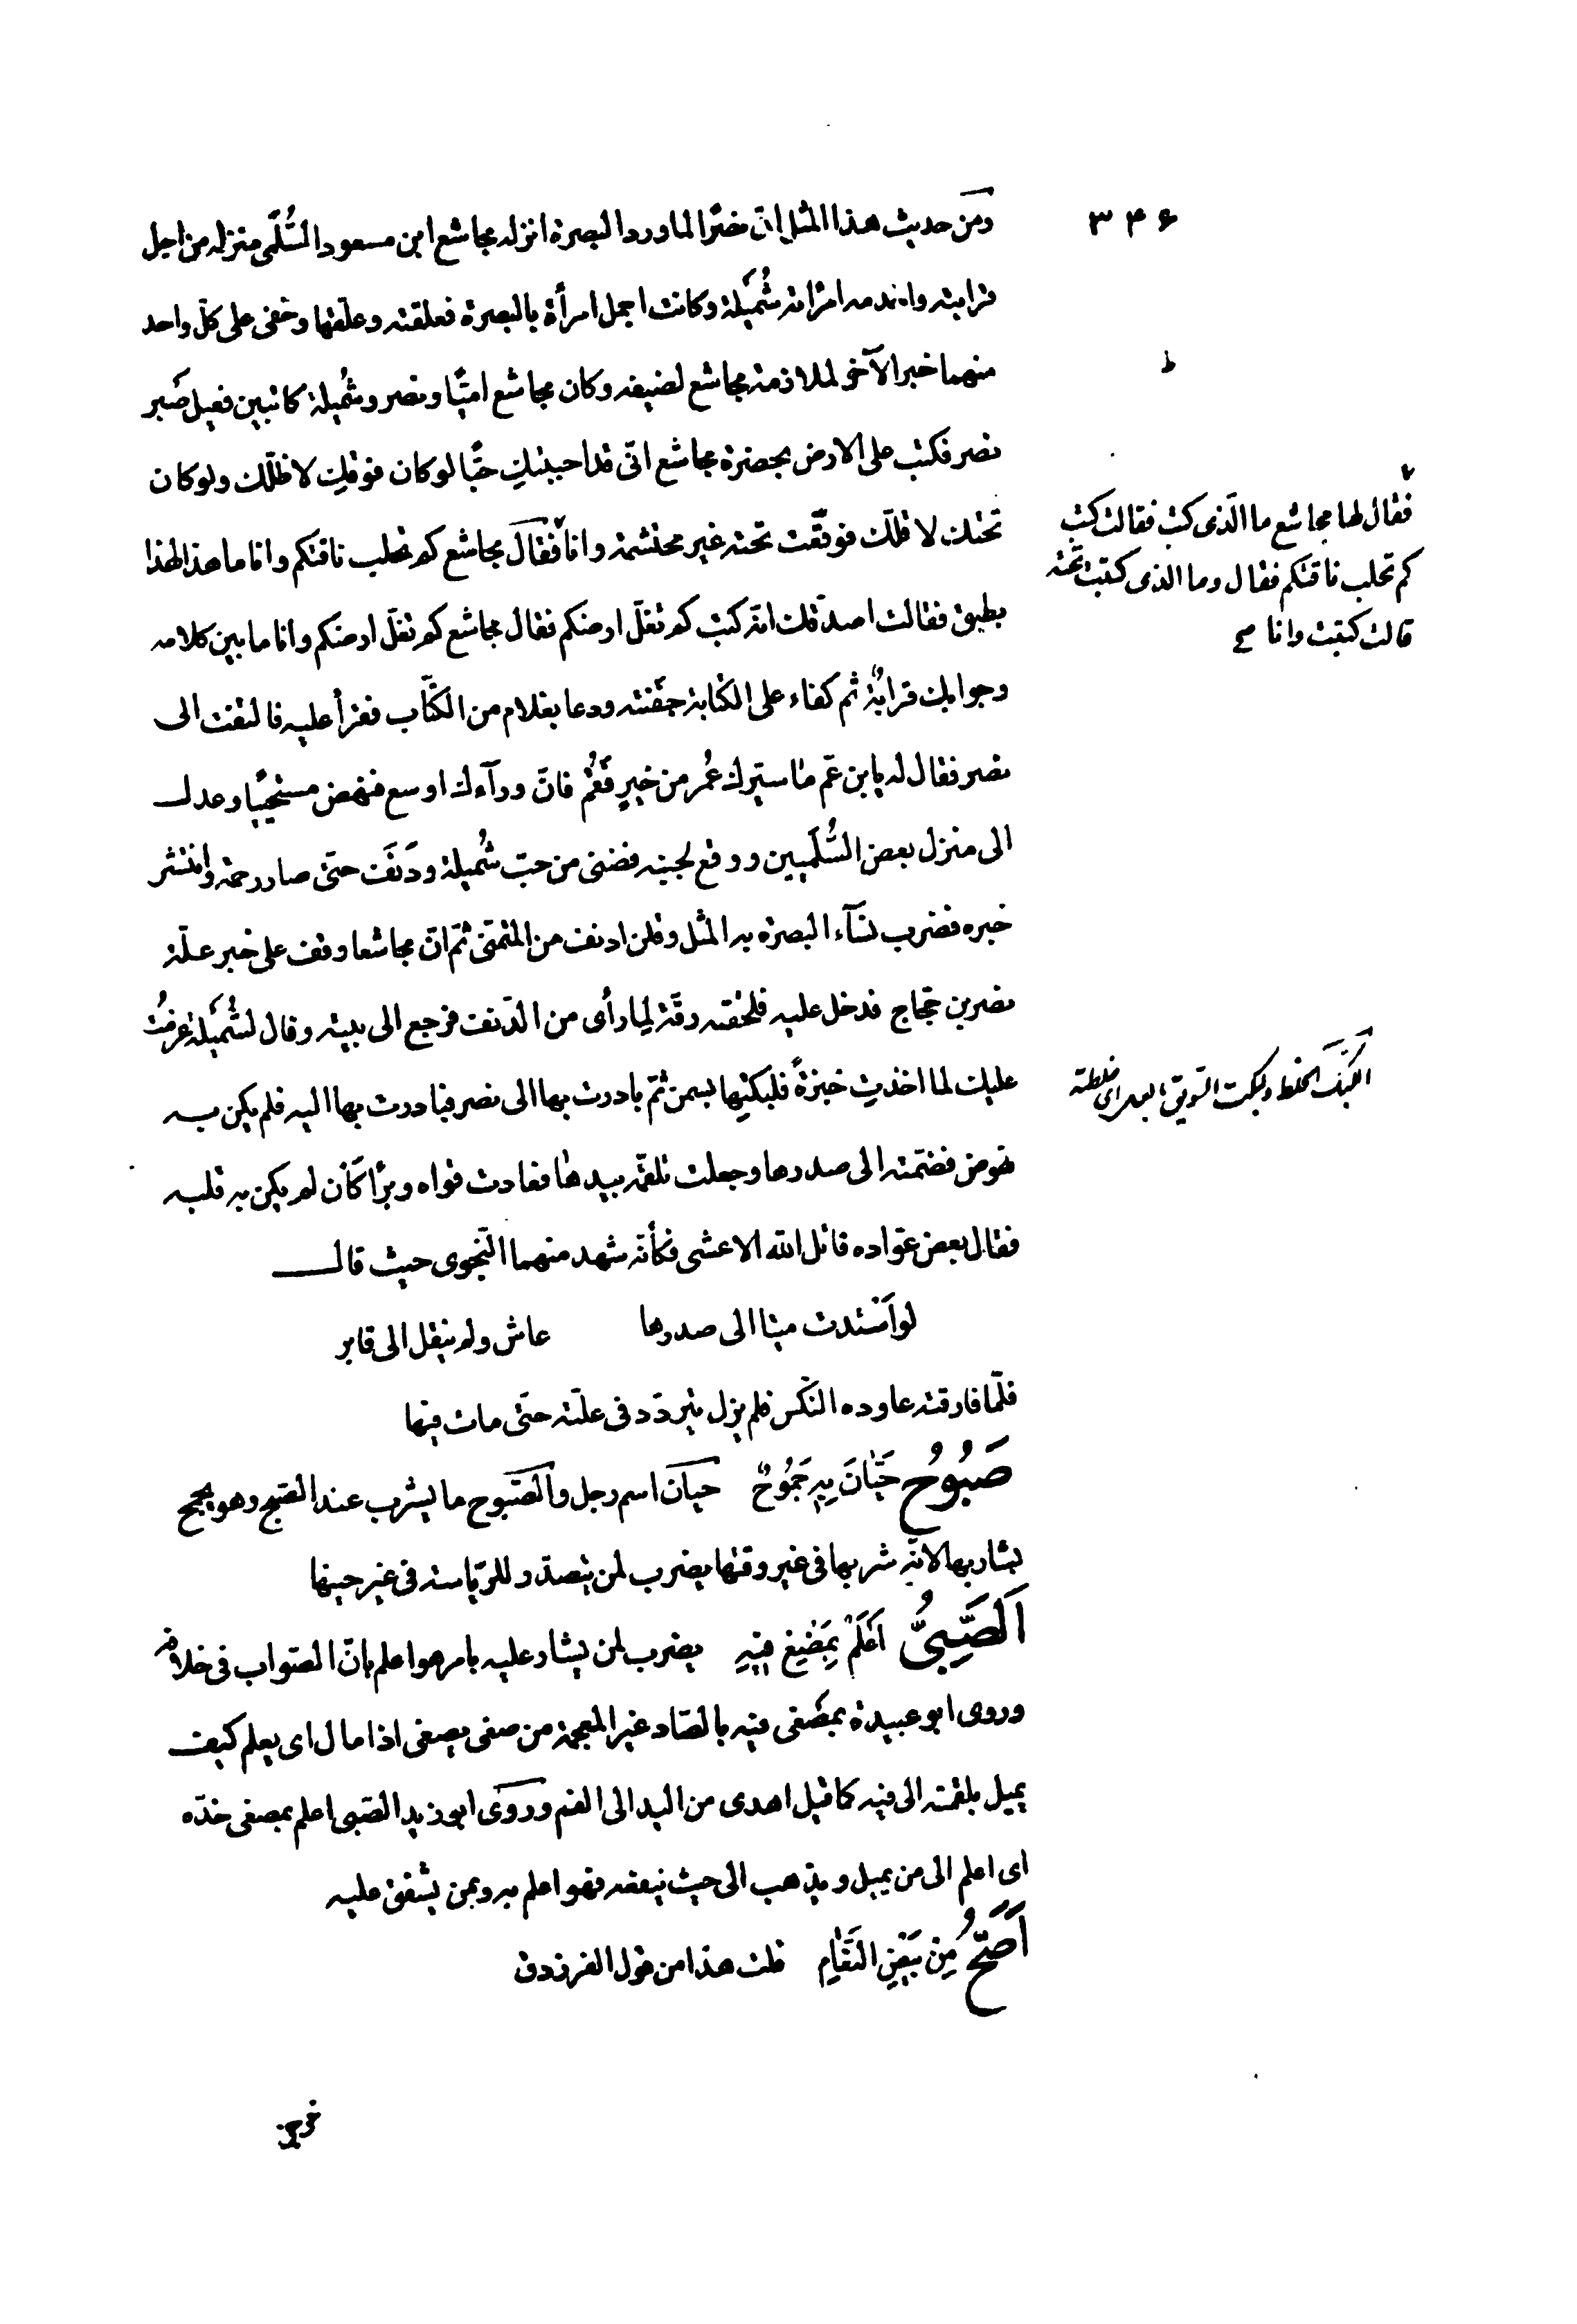 ٣٤۶
ومن حديث هذا المثل انّ نصرًا لما ورد البصرة انزله مجاشع ابن مسعود السُّلَمى منزله من اجل
قرابته واخدمه امرأته شُمَيلة وكانت اجمل امرأة بالبصرة فعلقته وعلقها وخفى على كلّ واحد
منهما خبر الآخر لملازمة مجاشع لضيفه وكان مجاشع اميًّا ونصر وشُميلة كاتبين فعيل صبر
نصر فكتب على الارض بحضرة مجاشع انّى قد احببتكِ حبًّا لو كان فوقكِ لاظلّك ولو كان
تحتك لاقلّك فوقّعت تحته غير محتشمة وانا فقال مجاشع كم تحلب ناقتكم وانا ما هذا لهذا
بطبق فقالت اصدقك انّه كتب كم تغلّ ارضكم فقال مجاشع كم تغلّ ارضكم وانا ما بين كلامه
وجوابك قرابةٌ ثم كفاء على الكتابة جفنة ودعا بغلام من الكتّاب فقرأ عليه فالتفت الى
نصر فقال له يا بن عمّ ما سيّرك عُمر من خيرٍ فقُم فانّ وراءك اوسع فنهض مستحييًا وعدل
الى منزل بعض السُّلَميين ووقع لجنبه فضنى من حبّ شُميلة ودَنَف حتىٰ صار رحمة وانتشر
خبره فضرب نسآء البصرة به المثل وقلن ادنف من المتمنّى ثمّ انّ مجاشعا وقف على خبر علّة
نصر بن حجّاج فدخل عليه فلحقته رقّة لما رأى من الدّنف فرجع الى بيته وقال لشُمَيلة عزمتُ
عليك لما اخذتِ خبزةً فلبكتِها بسمن ثمّ بادرت بها الى نصر فبادرت بها اليه فلم يكن به
نهوض فضمّته الى صدرها وجعلت تلقمه بيدها فعادت قواه وبرأ كأن لم يكن به قلبه
فقال بعض عوّاده قاتل الله الاعشى فكأنّه شهد منهما النّجوى حيث قال
لو اَسندت ميتا الى صدرها عاش ولم ينقل الى قابر
فلمّا فارقته عاوده النّكس فلم يزل يتردّد فى علّته حتّى مات فيها
صَبُوحُ حَيّانَ بِهِ جَمُوحٌ حيّان اسم رجل والصّبوح ما يشرب عند الصّبح وهو يجمح
بشاربها لانّه شربها فى غير وقتها يضرب لمن يتصدّر للرّياسة فى غير حينها
اَلصَّبِىُّ اَعْلَمُ بِمَضْغِ فِيهِ يضرب لمن يشار عليه بامر هو اعلم بانّ الصّواب فى خلافه
وروى ابو عبيدة بمصغى فيه بالصّاد غير المعجمة من صغى يصغى اذا مال اى يعلم كيف
يميل بلقمته الى فيه كما قيل اهدى من اليد الى الفم وروى ابو زيد الصّبى اعلم بمصغى خدّه
اى اعلم الى من يميل ويذهب الى حيث ينفعه فهو اعلم به وبمن يشفق عليه
اَصَحُّ مِن بَيْضِ النَّعَامِ قلت هذا من قول الفرزدق
خرجن
ط
فقال لها مجاشع ما الّذى كتب فقالت كتب
كم تحلب ناقتكم فقال وما الذى كتبت تحته
قالت كتبت وانا صح
اللَّبك الخلط ولبكت السّويق بالعسل اى خلطته